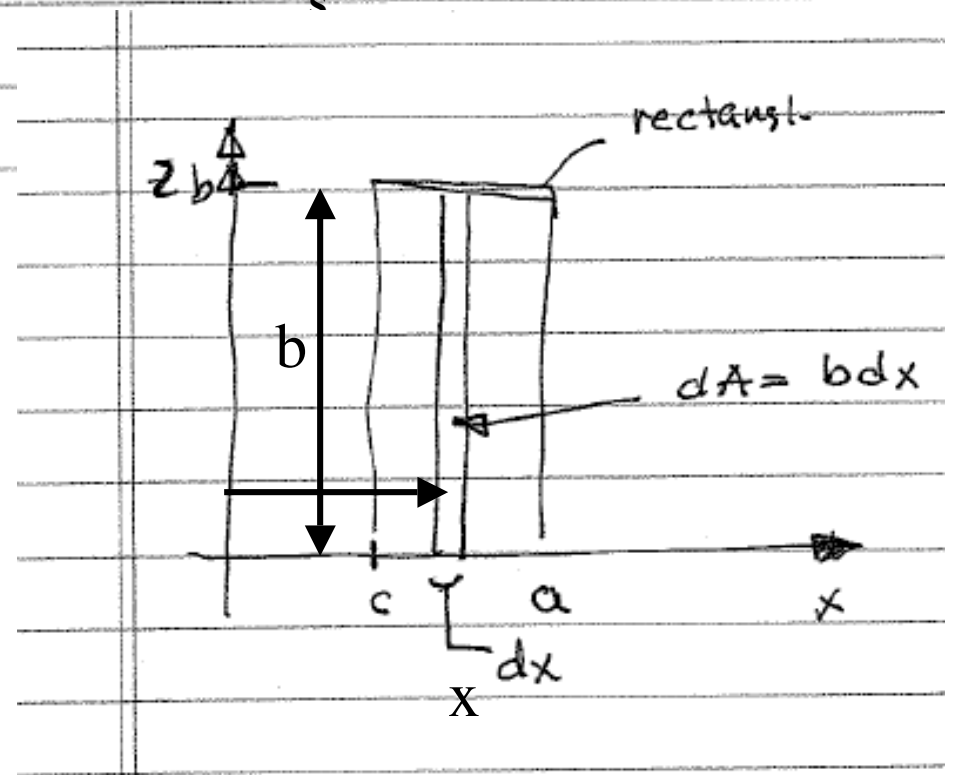 rectangl.
z b
b
dA = bdx
c
a
x
dx
x